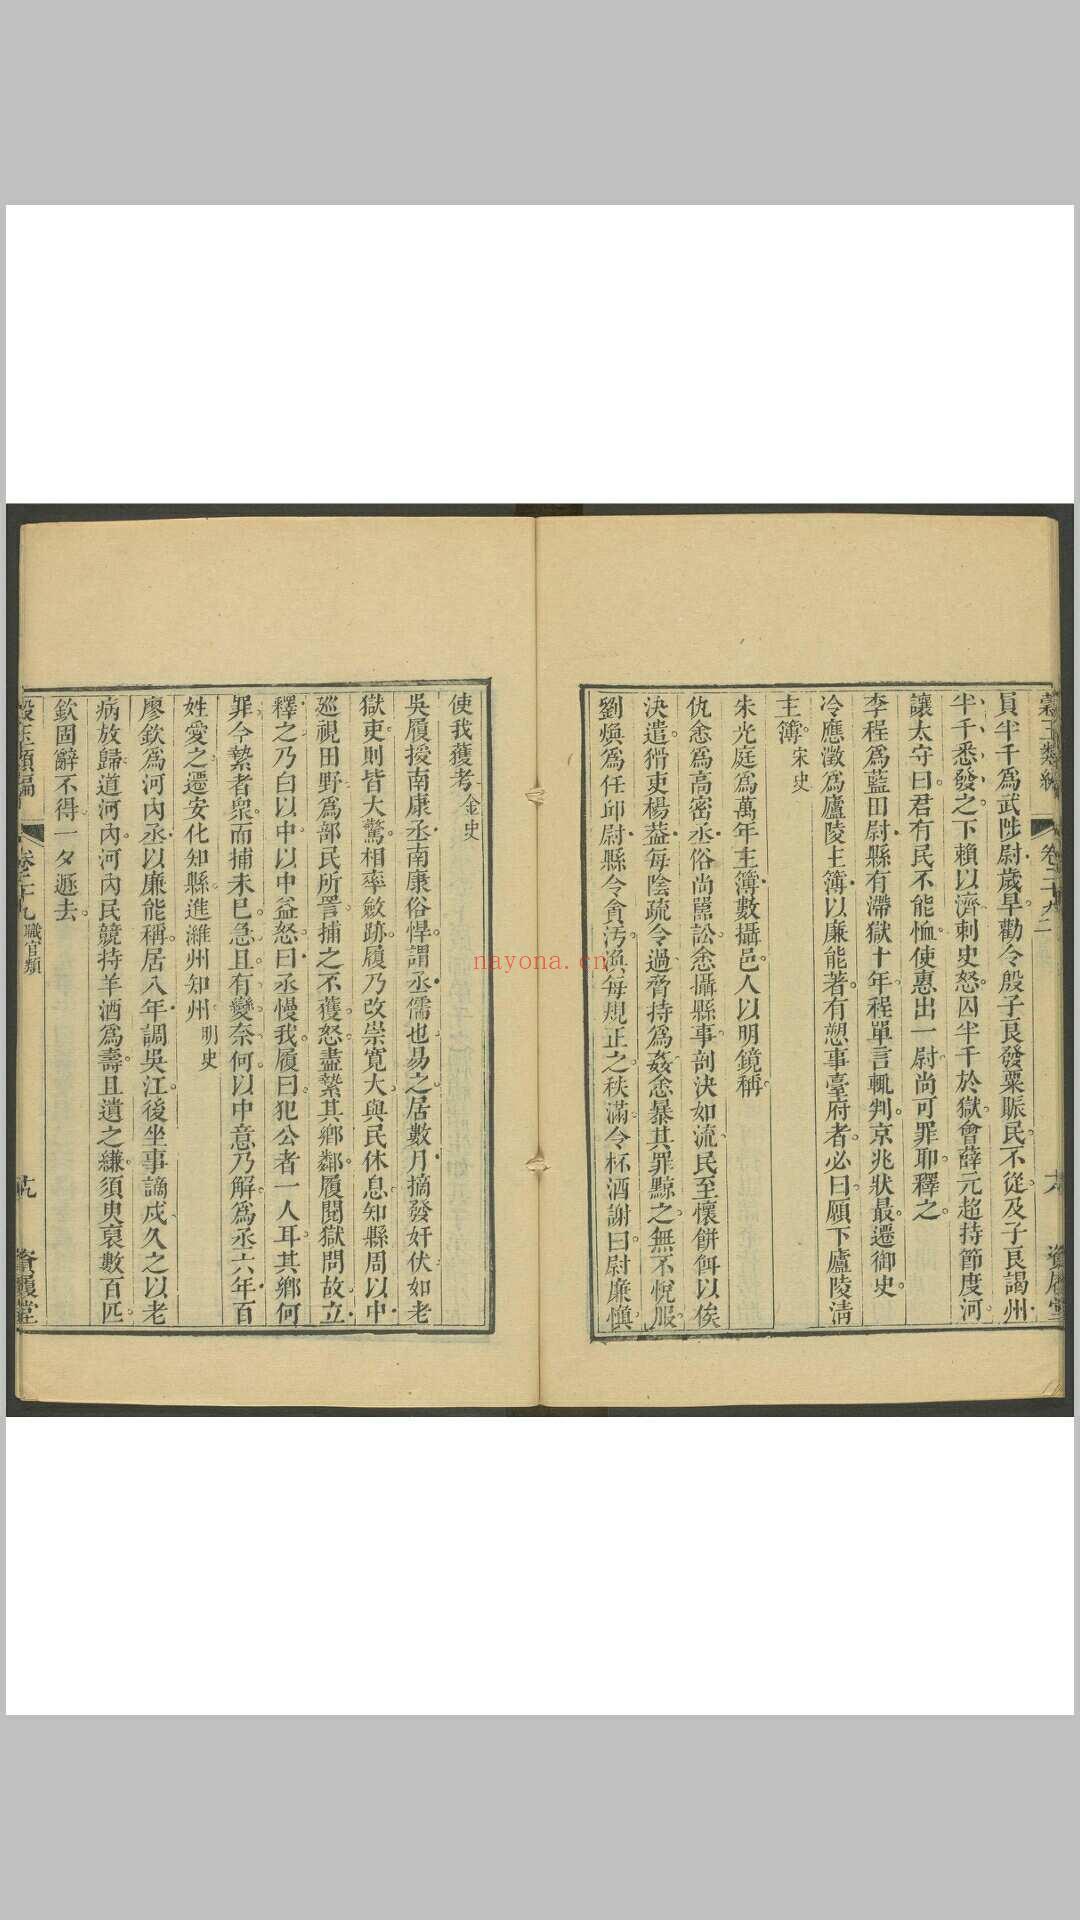 員半千爲武陟尉歲旱勸令殷子良發粟賑民不從及子良謁州
半千悉發之下賴以濟刺史怒囚半千於獄會薛元超持節度河
讓太守曰君有民不能恤使惠出一尉尚可罪耶釋之
李程爲藍田尉縣有滯獄十年程單言輒判京兆狀最遷御史
冷應澂爲廬陵主簿以廉能著有愬事臺府者必曰願下廬陵淸
主簿宋史
朱光庭爲萬年主簿數攝邑人以明鏡稱
仇悆爲高密丞俗尚嚚訟悆攝縣事剖決如流民至懷餅餌以俟
決遣猾吏楊蓋每陰疏令過脅持爲姦悆暴其罪黥之無不悅服
劉煥爲任邱尉縣令貪汚渙每規正之秩滿令杯酒謝曰尉廉愼
使我獲考金史
吳履授南康丞南康俗悍謂丞儒也易之居數月摘發奸伏如老
獄吏則皆大驚相率斂跡履乃改崇寬大與民休息知縣周以中
巡視田野爲部民所詈捕之不獲怒盡縶其鄕鄰履閱獄問故立
釋之乃白以中以中益怒曰丞慢我履曰犯公者一人耳其鄕何
罪今縶者衆而捕未已急且有變奈何以中意乃解爲丞六年百
姓愛之遷安化知縣進濰州知州明史
廖欽爲河內丞以廉能稱居八年調吳江後坐事謫戍久之以老
病放歸道河內河內民競持羊酒爲壽且遺之縑須臾裒數百匹
欽固辭不得一夕遯去
卷二十九 職官類 資履堂
nayona.cn